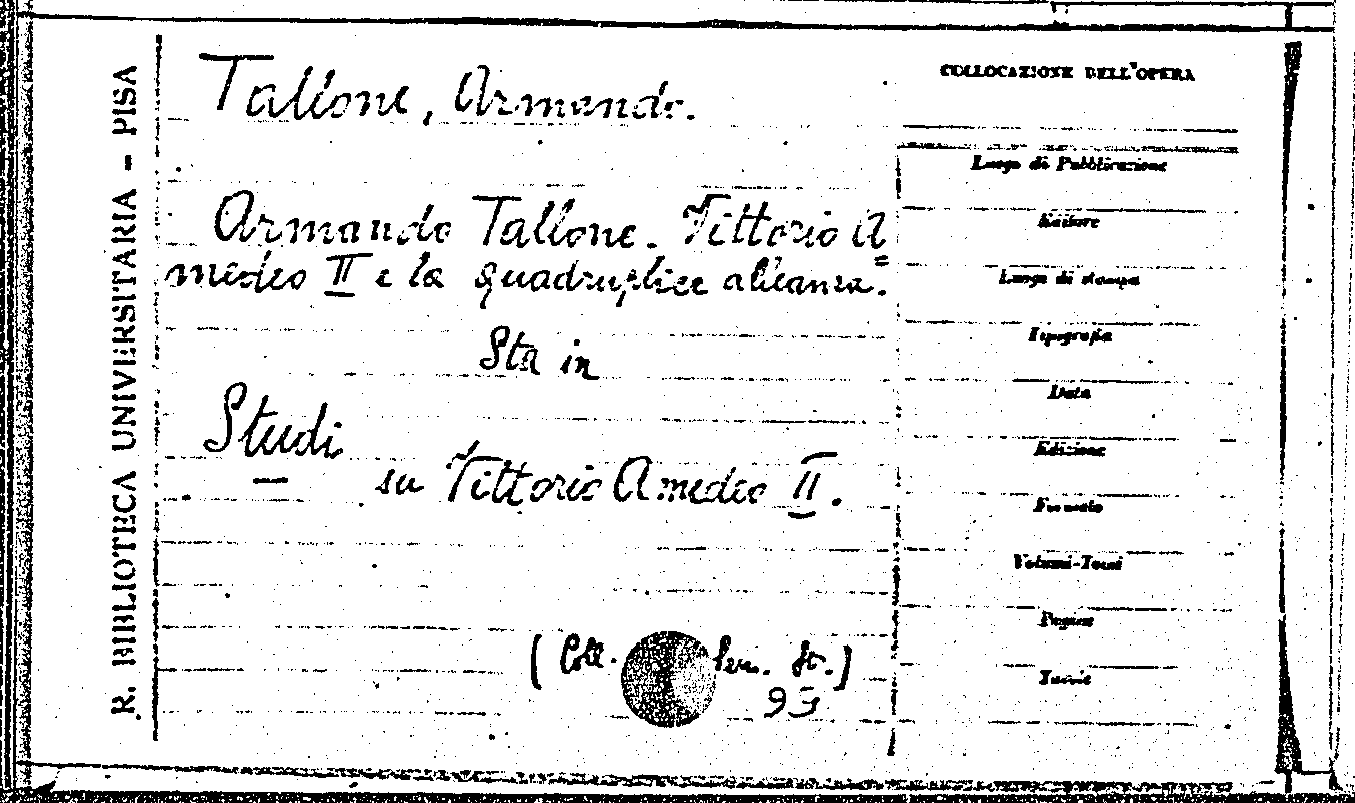 R. BIBLIOTECA UNIVERSITARIA - PISA
Tallone, Armando.
Armando Tallone. Vittorio A=
medeo II e la quadruplice alleanza.
Sta in
Studi
su Vittorio Amedeo II.
(Coll. Sem. St.)
93
COLLOCAZIONE DELL'OPERA
Luogo di Pubblicazione
Editore
Luogo di stampa
Tipografia
Data
Edizione
Formato
Volumi-Tomi
Pagine
Tavole